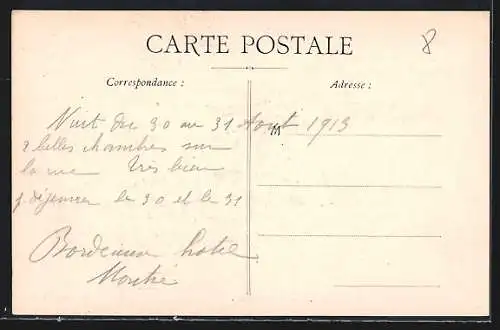 CARTE POSTALE
8
Correspondance :
Adresse :
Nuit du 30 au 31 Août 1913
2 belles chambres sur
la rue Très bien
déjeuner le 30 et le 31
hotel